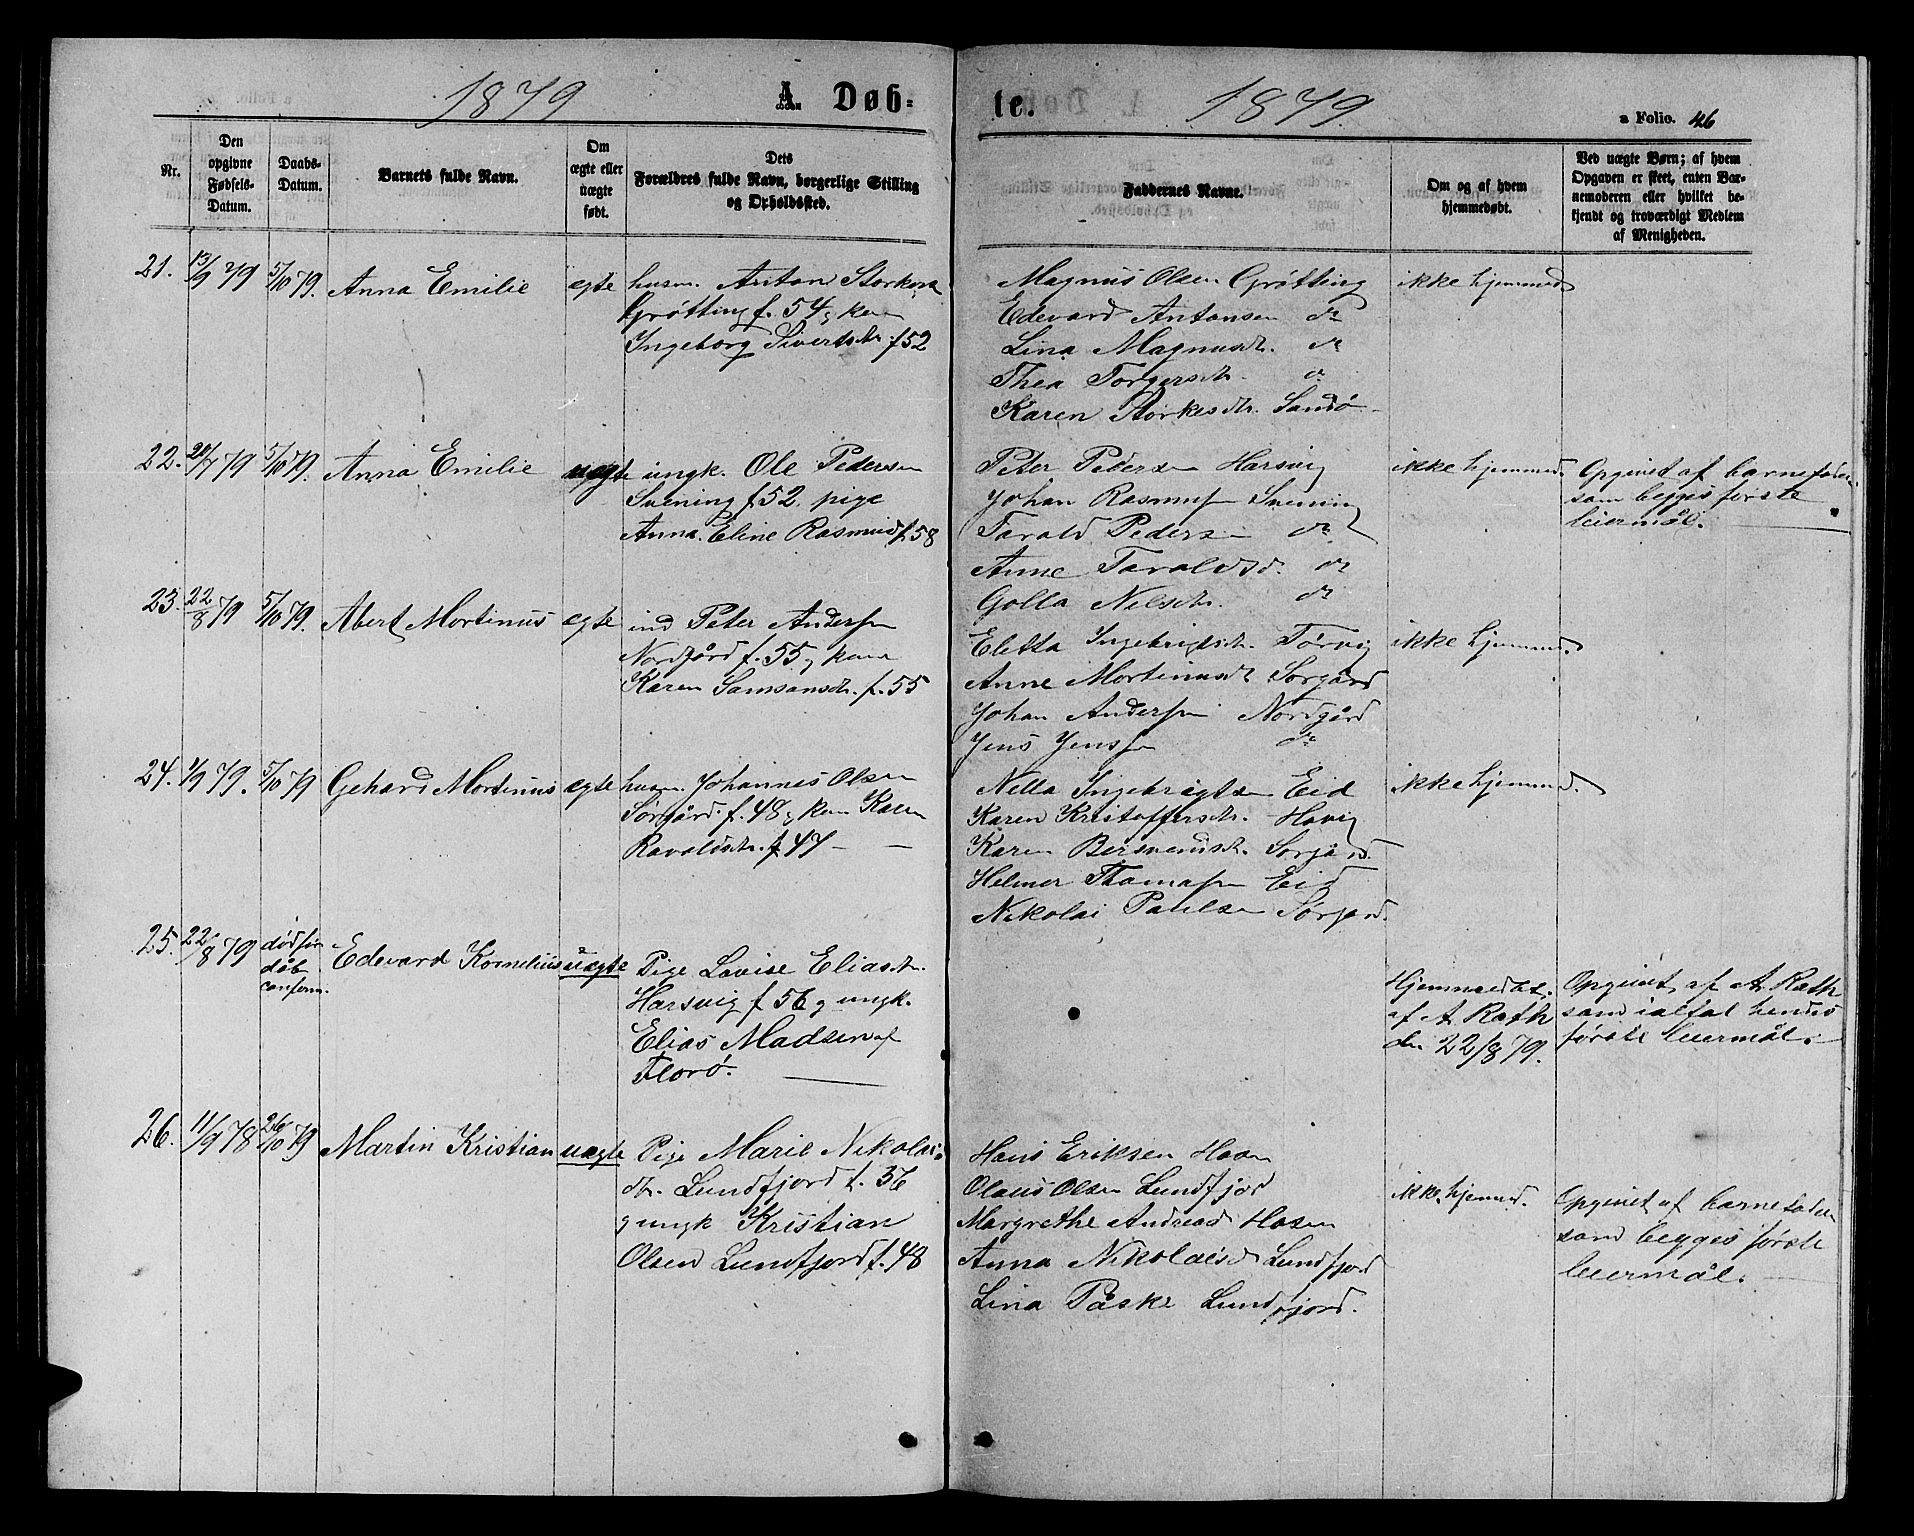 1879 A Døb- te. 1879. a Folio. 46
Nr.
Den opgivne Fødsels-Datum.
Daabs-Datum.
Barnets fulde Navn.
Om ægte eller uægte født.
Dets Forældres fulde Navn, borgerlige Stilling og Opholdssted.
Faddernes Navne.
Om og af hvem hjemmedøbt.
Ved uægte Børn; af hvem Opgaven er skeet, enten Barnemoderen eller hvilket bekjendt og troværdigt Medlem af Menigheden.
21. 13/9 79 5/10 79. Anna Emilie ægte husm. Anton Storkers
Grøtting f. 54 & kone
Ingeborg Sivertsdtr f 52
Magnus Olsen Grøtting ikke hjemmed
Edevard Antonsen do
Lina Magnusdt. do
Thea Torgersdtr do
Karen Storkesdtr. Sandø
22. 20/7 79 5/10 79. Anna Emilie uægte ungk. Ole Pedersen
Svening f 52. pige
Anna Eline Rasmusd f. 58
Peter Pedersen Harsvig ikke hjemmed. Opgivet af barnefader
Johan Rasmussen Svening som begges første
Tarald Pedersen do leiermål.
Anne Taraldsd. do
Golla Nilsdtr. do
23. 22/8 79 5/10 79. Abert Mortinus ægte ind Peter Andersen
Nordgård f. 55 & kone
Karen Samsonsdt. f. 55
Eletta Ingebrigtsdt. Tørvig ikke hjemmed.
Anne Mortinusdt Sørgård
Johan Andersen Nordgård
Jens Jenssen do
24. 1/9 79. 5/10 79 Gehard Mortinus ægte husm. Johannes Olsen
Sørgård f. 48 & kone Karen
Ravaldsdtr. f 47
Nella Ingebrigtsen Eid ikke hjemmed.
Karen Kristoffersdtr. Hovig
Karen Bersvendsdt. Sørgård.
Helmer Thomassen Eid
Nikolai Paulsen Sørgård.
25. 22/8 79 død før Edevard Kornelius uægte Pige Lovise Eliasdtr.
døb.
confirm.
Harsvig f 56 & ungk.
Elias Madsen af
Florø.
Hjemmedøbt. Opgivet af A. Rath
af A Rath som ialfal hendes
den 22/8 79. første leiermål.
26. 11/9 78 26/10 79 Martin Kristian uægte Pige Marie Nikolai-
dtr. Lundfjord f. 56
& ungk Kristian
Olsen Lundfjord f. 48
Hans Eriksen Hosen
Olaus Olsen Lundfjord ikke hjemmed. Opgivet af barnefader
Margrethe Andreasd Hosen som begges første
Anna Nikolaisd Lundfjord leiermål.
Lina Påske Lundfjord.